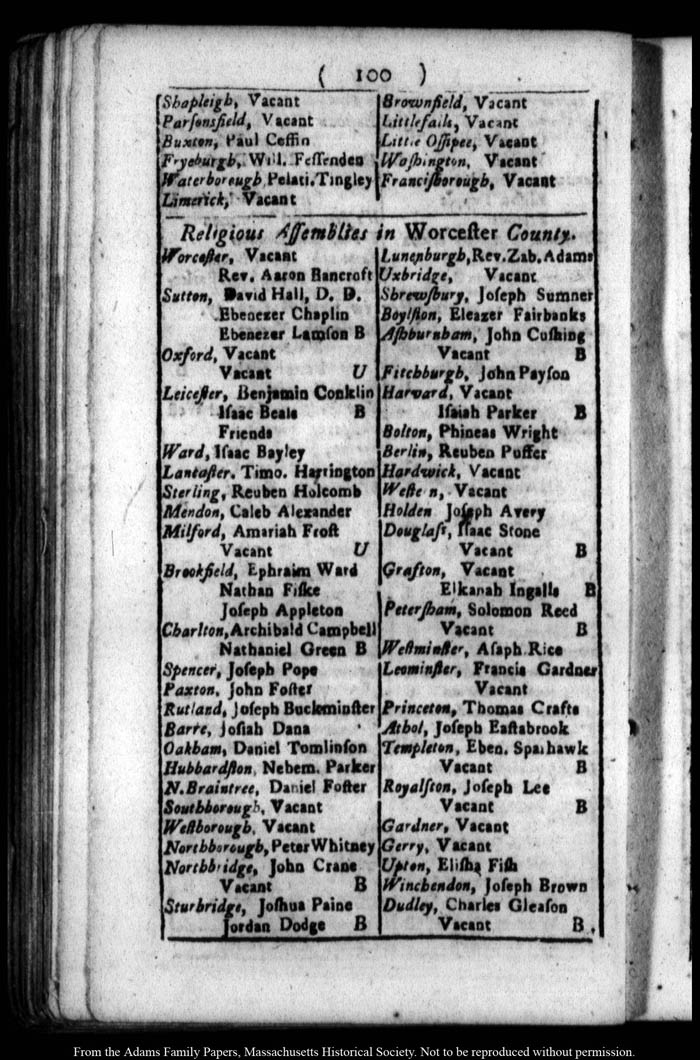 ( 100 )
Shapleigh, Vacant
Parſonsfield, Vacant
Buxton, Paul Coffin
Fryeburgh, Will. Feſſenden
Waterborough Pelati. Tingley
Limerick, Vacant
Brownfield, Vacant
Littlefalls, Vacant
Little Oſſipee, Vacant
Waſhington, Vacant
Franciſborough, Vacant
Religious Aſſemblies in Worceſter County.
Worceſter, Vacant
Rev. Aaron Bancroft
Sutton, David Hall, D. D.
Ebenezer Chaplin
Ebenezer Lamſon B
Oxford, Vacant
Vacant U
Leiceſter, Benjamin Conklin
Iſaac Beals B
Friends
Ward, Iſaac Bayley
Lancaſter. Timo. Harrington
Sterling, Reuben Holcomb
Mendon, Caleb Alexander
Milford, Amariah Froſt
Vacant U
Brookfield, Ephraim Ward
Nathan Fiſke
Joſeph Appleton
Charlton, Archibald Campbell
Nathaniel Green B
Spencer, Joſeph Pope
Paxton, John Foſter
Rutland, Joſeph Buckminſter
Barre, Joſiah Dana
Oakham, Daniel Tomlinſon
Hubbardſton, Nehem. Parker
N. Braintree, Daniel Foſter
Southborough, Vacant
Weſtborough, Vacant
Northborough, Peter Whitney
Northbridge, John Crane
Vacant B
Sturbridge, Joſhua Paine
Jordan Dodge B
Lunenburgh, Rev. Zab. Adams
Uxbridge, Vacant
Shrewſbury, Joſeph Sumner
Boylſton, Eleazer Fairbanks
Aſhburnham, John Cuſhing
Vacant B
Fitchburgh, John Payſon
Harvard, Vacant
Iſaiah Parker B
Bolton, Phineas Wright
Berlin, Reuben Puffer
Hardwick, Vacant
Weſte n, Vacant
Holden Joſeph Avery
Douglaſs, Iſaac Stone
Vacant B
Grafton, Vacant
Elkanah Ingalls B
Peterſham, Solomon Reed
Vacant B
Weſtminſter, Aſaph Rice
Leominſter, Francis Gardner
Vacant
Princeton, Thomas Crafts
Athol, Joſeph Eaſtabrook
Templeton, Eben. Sparhawk
Vacant B
Royalſton, Joſeph Lee
Vacant B
Gardner, Vacant
Gerry, Vacant
Upton, Eliſha Fiſh
Winchendon, Joſeph Brown
Dudley, Charles Gleaſon
Vacant B.
From the Adams Family Papers, Massachusetts Historical Society. Not to be reproduced without permission.